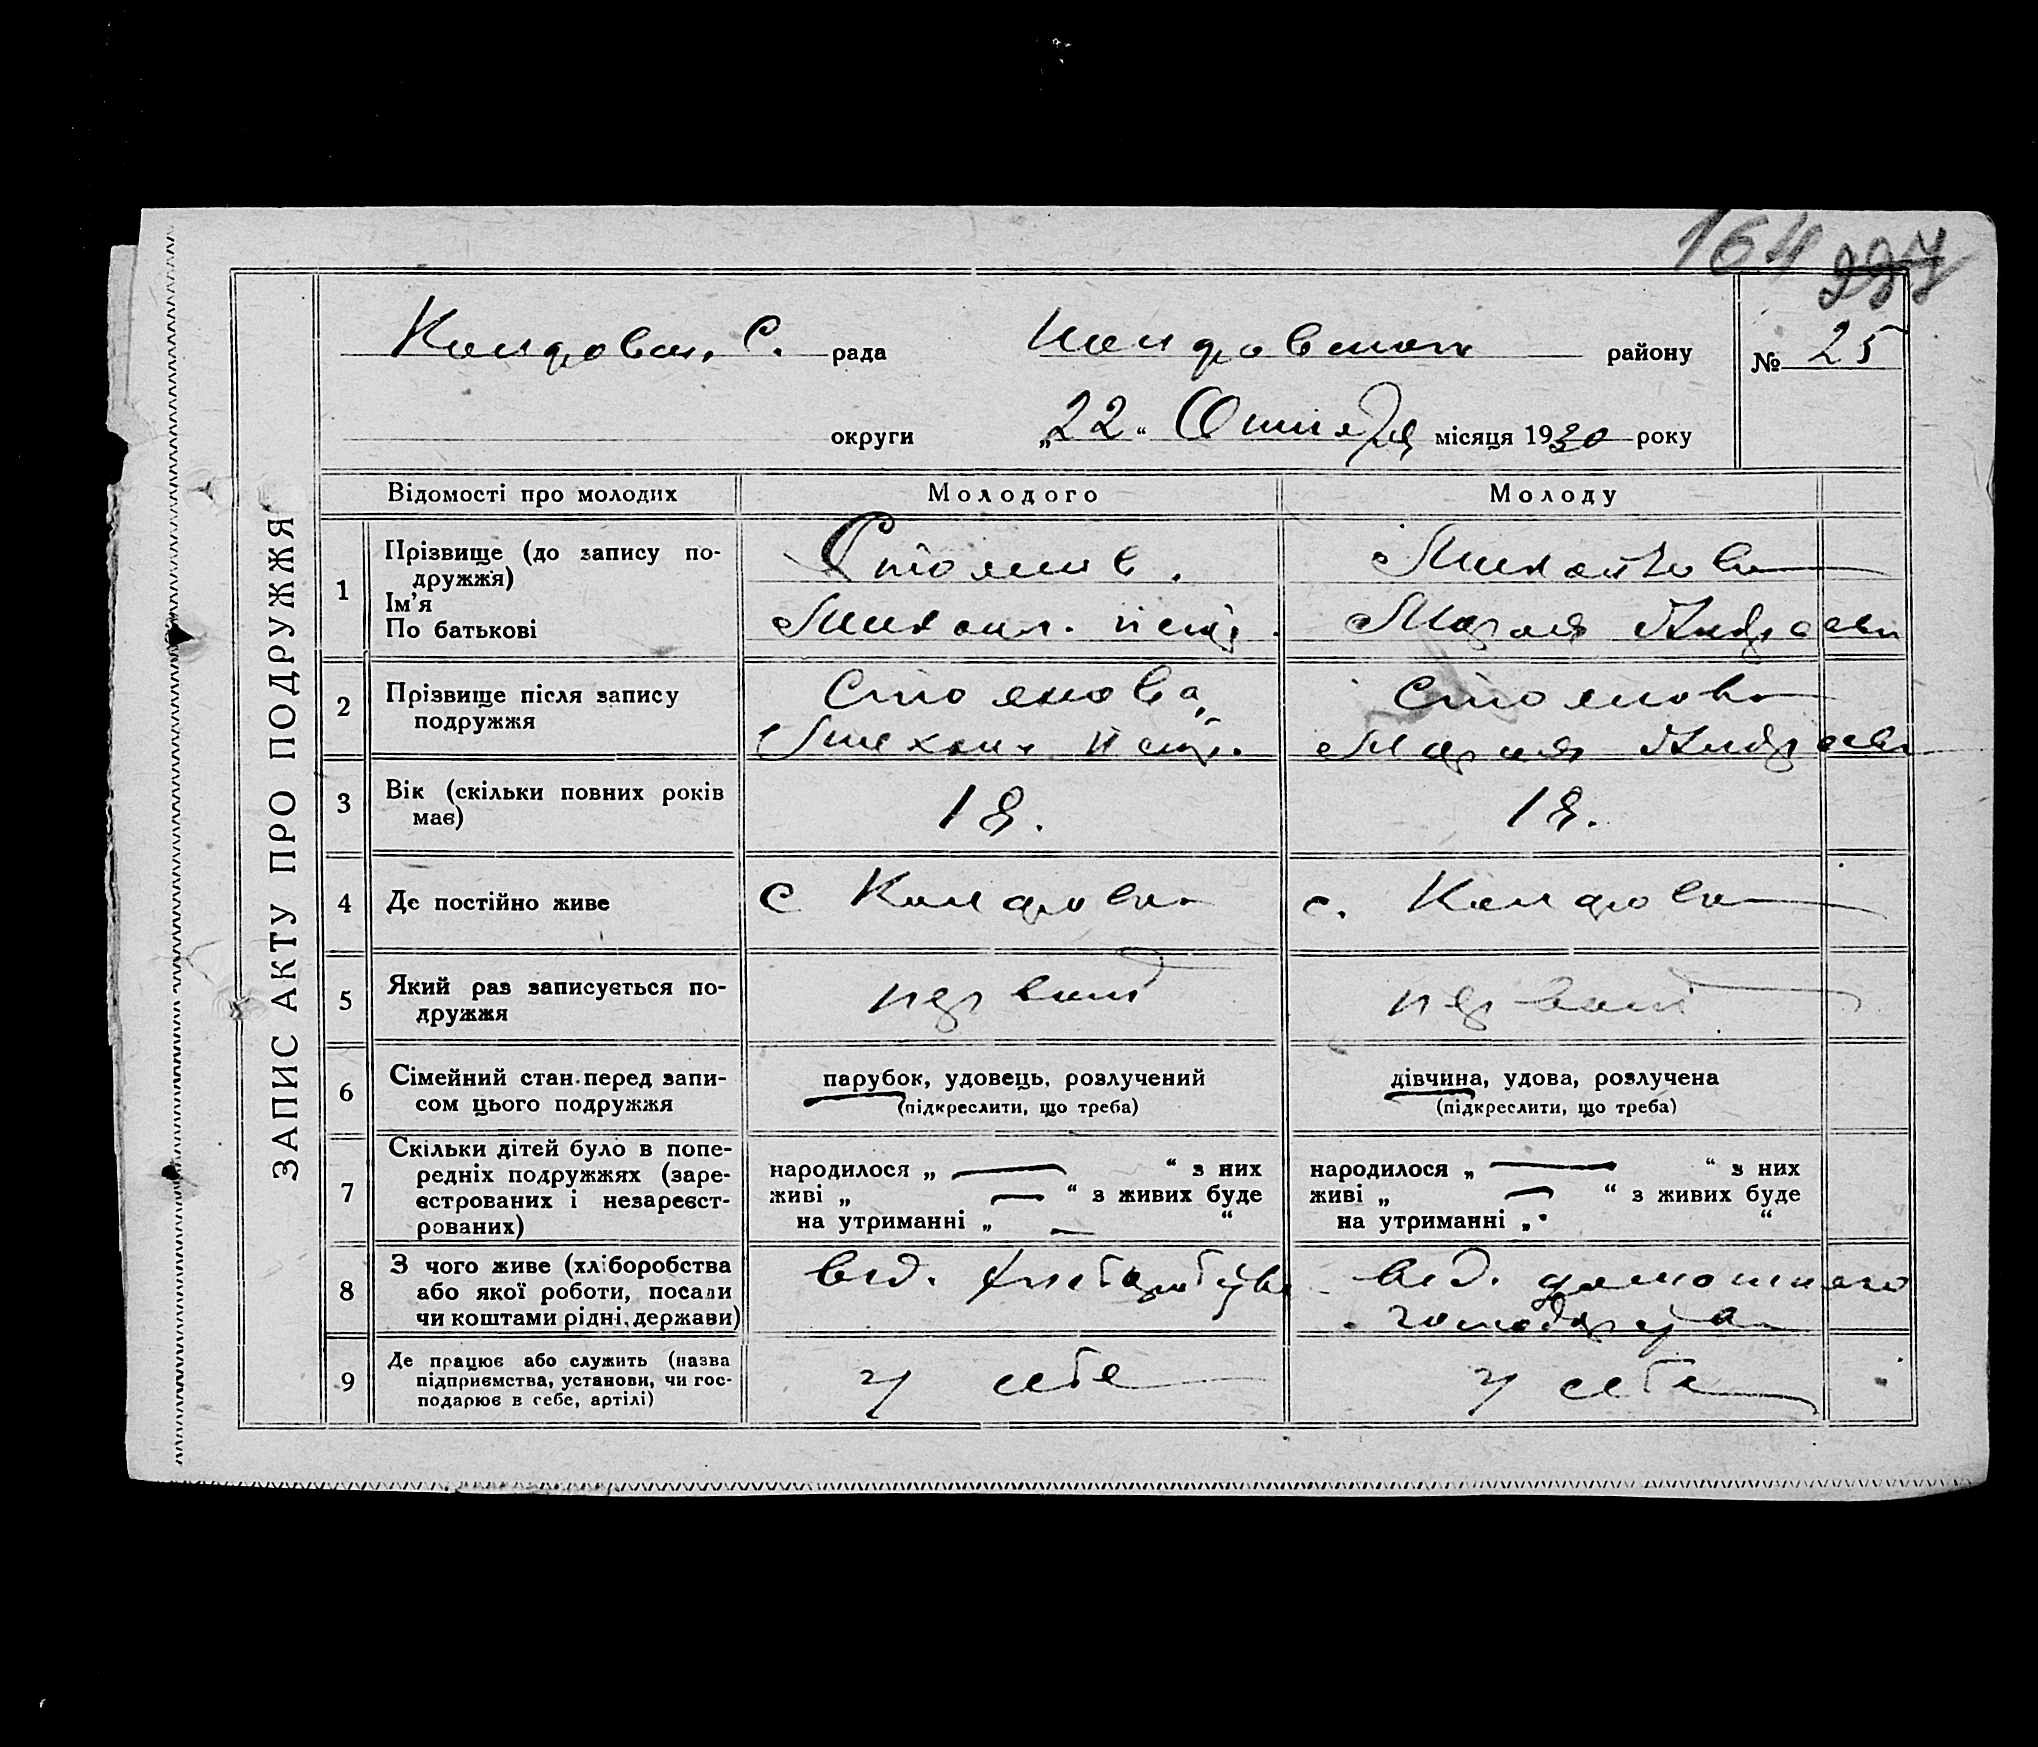 164 997
ЗАПИС АКТУ ПРО ПОДРУЖЖЯ
С. рада району № 25
округи „22“ місяця 1930 року
Відомості про молодих Молодого Молоду
1 Прізвище (до запису по-
дружжя)
Ім'я
По батькові
Стоянов.
Михаил.
Мария
2 Прізвище після запису
подружжя
Стоянова
Стоянова
Мария
3 Вік (скільки повних років
має)
18. 18.
4 Де постійно живе
с
с.
5 Який раз записується по-
дружжя
первий первий
6 Сімейний стан перед запи-
сом цього подружжя
парубок, удовець, розлучений
(підкреслити, що треба)
дівчина, удова, розлучена
(підкреслити, що треба)
7 Скільки дітей було в попе-
редніх подружжях (заре-
єстрованих і незареєст-
рованих)
народилося „ — “ з них
живі „ — “ з живих буде
на утриманні „ — “
народилося „ — “ з них
живі „ — “ з живих буде
на утриманні „ “
8 З чого живе (хліборобства
або якої роботи, посади
чи коштами рідні, держави)
від.
від. домошнего
9 Де працює або служить (назва
підприємства, установи, чи гос-
подарює в себе, артілі)
у себе у себе